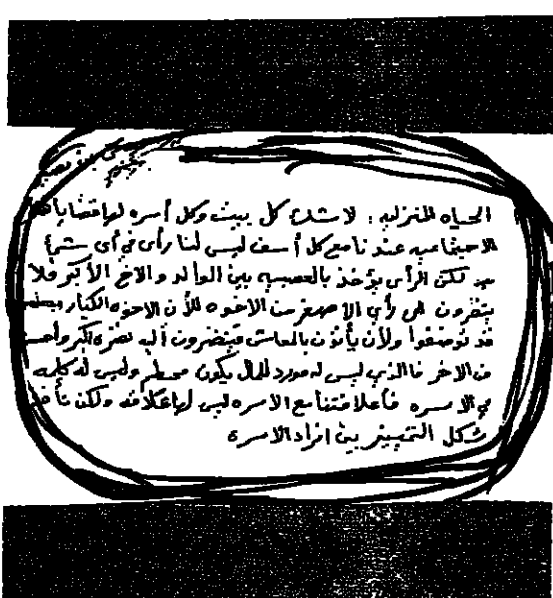 الحياه المنزليه : لا شك كل بيت وكل أسره لها قضاياها
الاجتماعيه عندنا مع كل أسف ليس لنا رأى في أى شىء
تكن الرأى يؤخذ بالعصبيه بين الوالد والاخ الأكبر فلا
ينظرون الى رأى الاصغر من الاخوه لأن الاخوه الكبار
قد توضفوا ولأن يأتون بالمعاش فينضرون أليه نضره أكبر وأحسن
من الاخر فالذي ليس له مورد للمال يكون محطم وليس له كلمه
في الاسره فأعلاقتنا مع الاسره ليس لها علاقه ولكن تأخذ
شكل التمييز بين افراد الاسرة